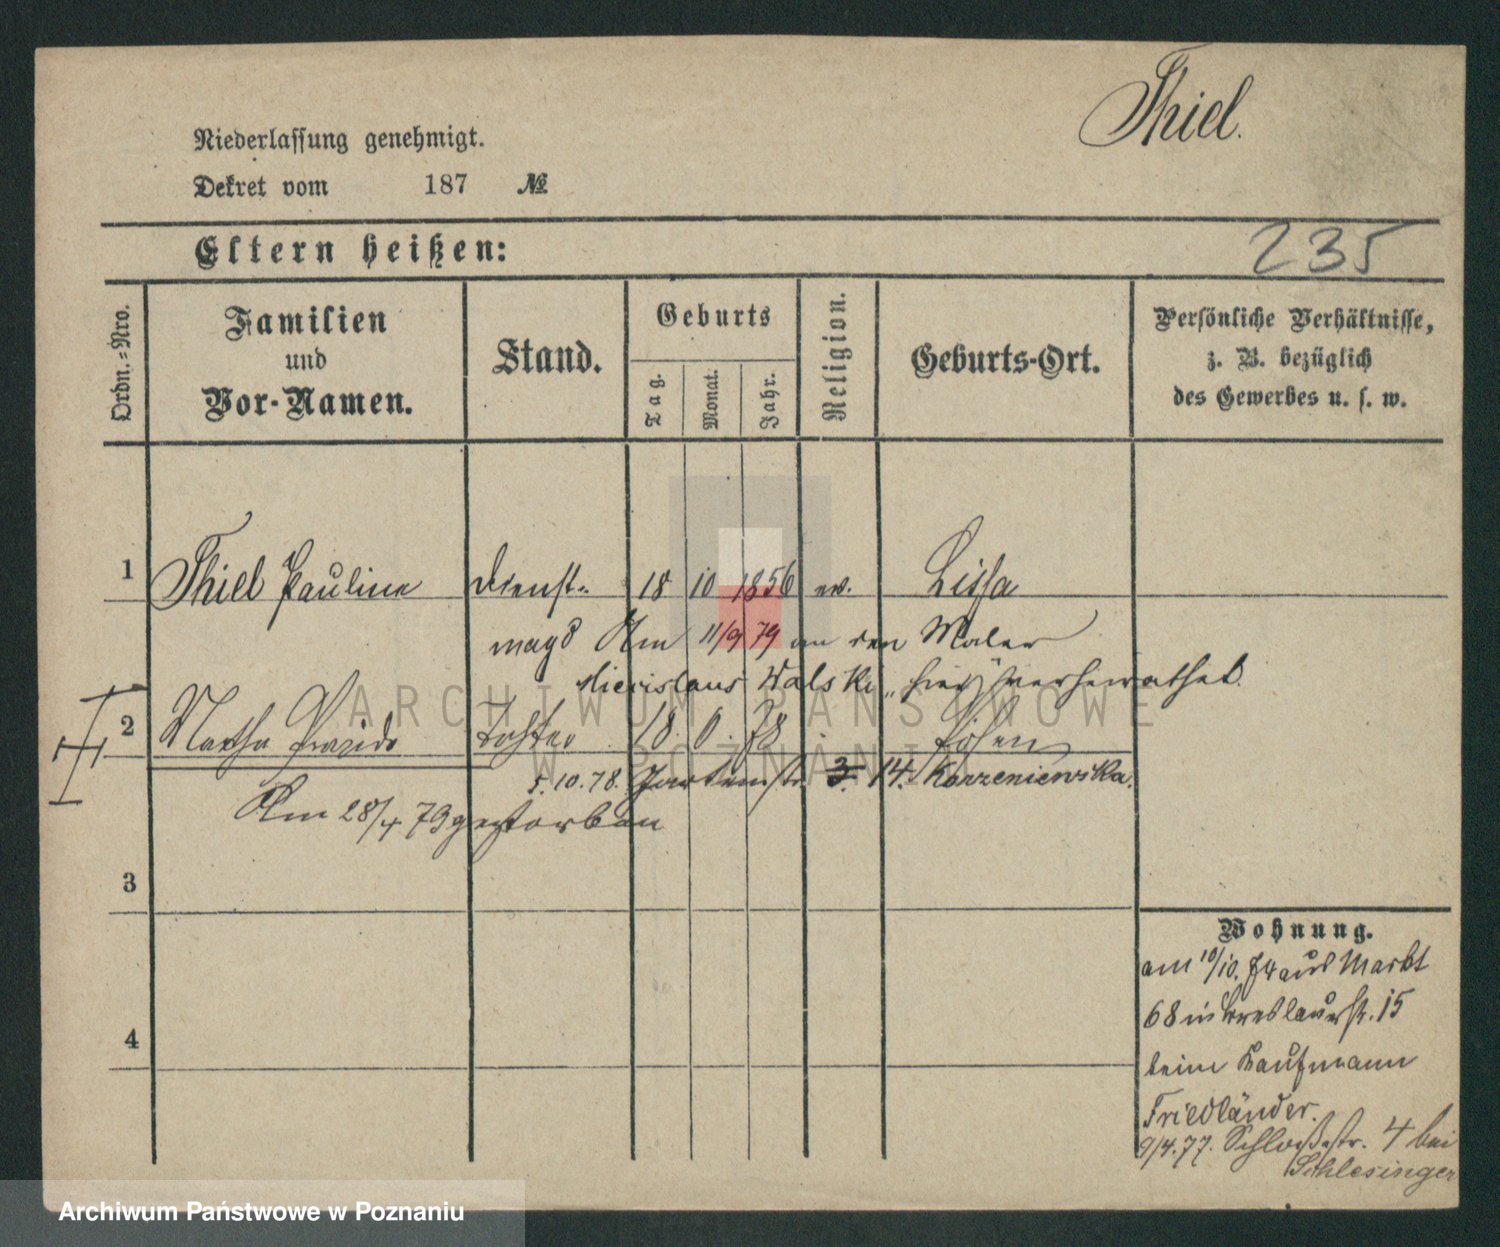 Thiel.
Niederlassung genehmigt.
Dekret vom 187 №
235
Eltern heißen:
Ordn.-Nro.
Familien
und
Vor-Namen.
Stand.
Geburts
Tag.
Monat.
Jahr.
Religion.
Geburts-Ort.
Persönliche Verhältnisse,
z. B. bezüglich
des Gewerbes u. s. w.
1 Thiel Pauline Dienst- 18 10 1856 ev. Lissa
magd Am 11/9 79 an den Maler
Walski, hier verheirathet.
ARCHIWUM PAŃSTWOWE
W POZNANIU
2 Martha Tochter 18. 78 Posen
5.10.78. Gartenstr. 3. 14. Korzeniewska.
Am 28/4 79 gestorben
3
4
Wohnung.
am 10/10. 74 aus Markt
68 in Breslauerstr. 15
beim Kaufmann
Friedländer.
9/4.77. Schloßstr. 4 bei
Schlesinger
Archiwum Państwowe w Poznaniu